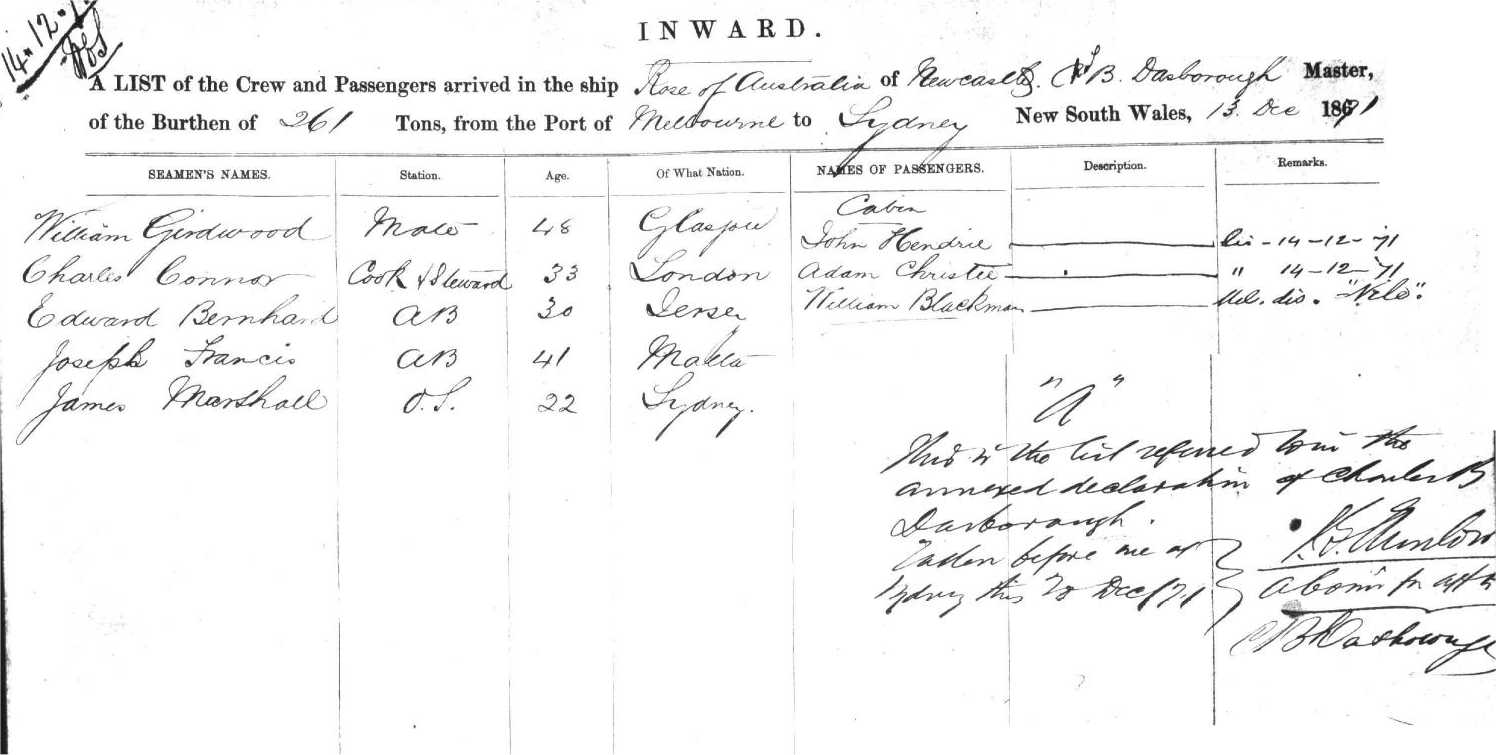 14.12.
INWARD.
A LIST of the Crew and Passengers arrived in the ship Rose of Australia of Newcastle. B. Dasborough Master,
of the Burthen of 261 Tons, from the Port of Melbourne to Sydney New South Wales, 13 Dec 1871
SEAMEN'S NAMES. Station. Age. Of What Nation. NAMES OF PASSENGERS. Description. Remarks.
Cabin
William Girdwood Mate 48 Glasgow John Hendrie dis - 14-12-71
Charles Connor Cook & Steward 33 London Adam Christie " 14-12-71
Edward Bernhard AB 30 Jersey William Blackman dis. "Nile".
Joseph Francis AB 41 Malta
James Marshall O.S. 22 Sydney.
"A"
This is the list referred to in the
annexed declaration of Charles B
Dasborough.
Taken before me at
Sydney this Dec/71
C B Dasborough